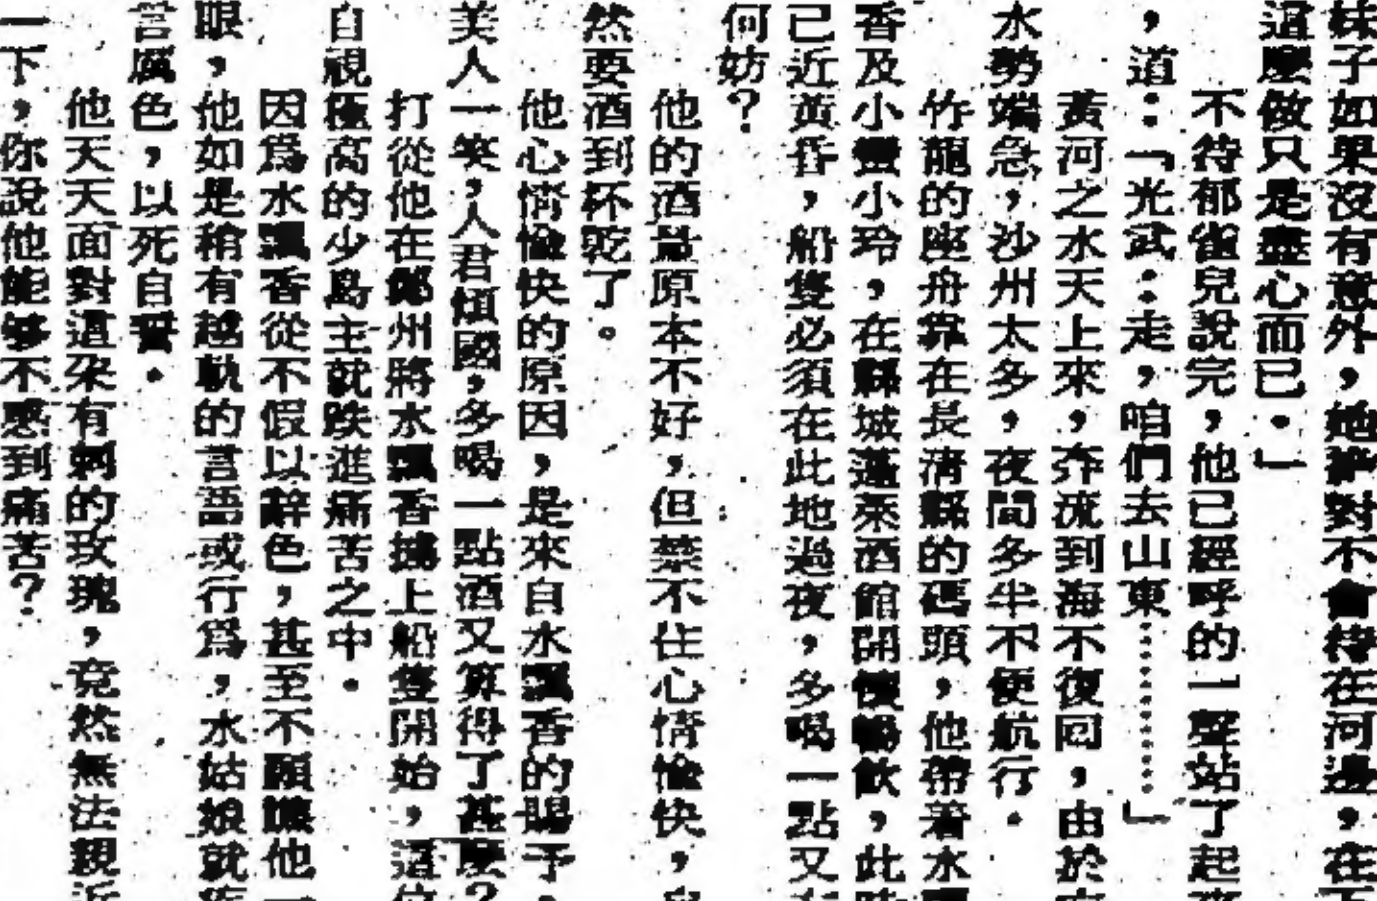 妹子如果沒有意外，她諒對不會待在河邊，在下
這麼做只是盡心而已．」
不待郁雀兒說完，他已經呼的一聲站了起來
，道：「光武：走，咱們去山東………」
黃河之水天上來，奔流到海不復回，由於
水勢端急，沙州太多，夜間多半不便航行．
竹龍的座舟靠在長清縣的碼頭，他帶着水
香及小蠻小玲，在縣城蓬萊酒館開懷暢飲，此時
已近黃昏，船隻必須在此地過夜，多喝一點又
何妨？
他的酒量原本不好，但禁不住心情愉快，
然要酒到杯乾了。
他心情愉快的原因，是來自水飄香的賜予，
美人一笑，人君傾國，多喝一點酒又算得了甚麼？
打從他在鄭州將水飄香擄上船隻開始，這位
自視極高的少島主就跌進痛苦之中．
因爲水飄香從不假以辭色，甚至不願讓他一
眼，他如是稍有越軌的言語或行爲，水姑娘就
言厲色，以死自誓．
他天天面對這朶有刺的玫瑰，竟然無法親近
一下，你說他能够不感到痛苦？